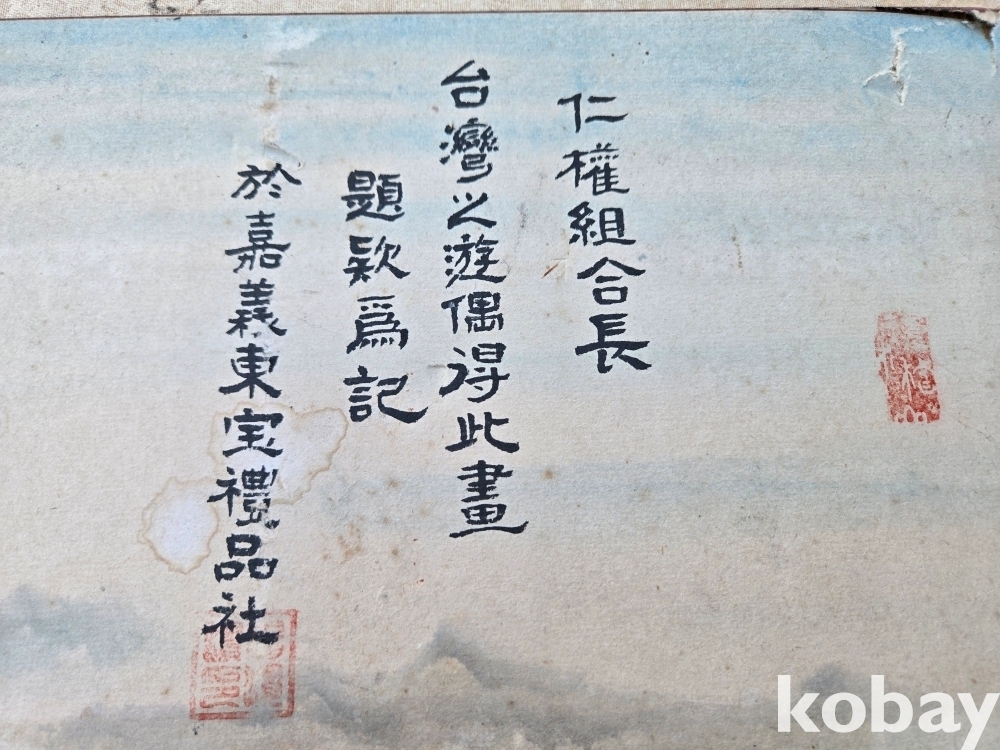 仁權組合長
台灣之遊偶得此畫
題欵為記
於嘉義東宝禮品社
kobay